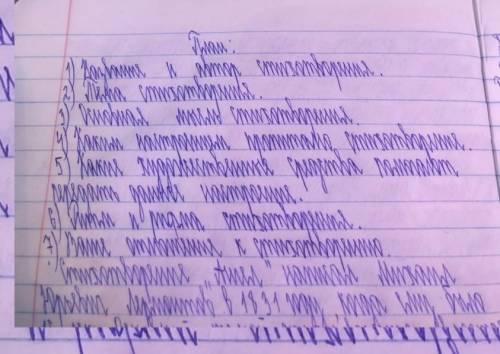 План:
1) Название и автор стихотворения.
2) Тема стихотворения.
3) Основная мысль стихотворения.
4) Каким настроением пропитано стихотворение.
5) Какие художественные средства помогают
передать данное настроение.
6) Рифм и ритма стихотворения.
7) Ваше отношение к стихотворению.
Стихотворение "Ангел" написал Михаил
Юрьевич Лермонтов в 1831 году, когда ему было